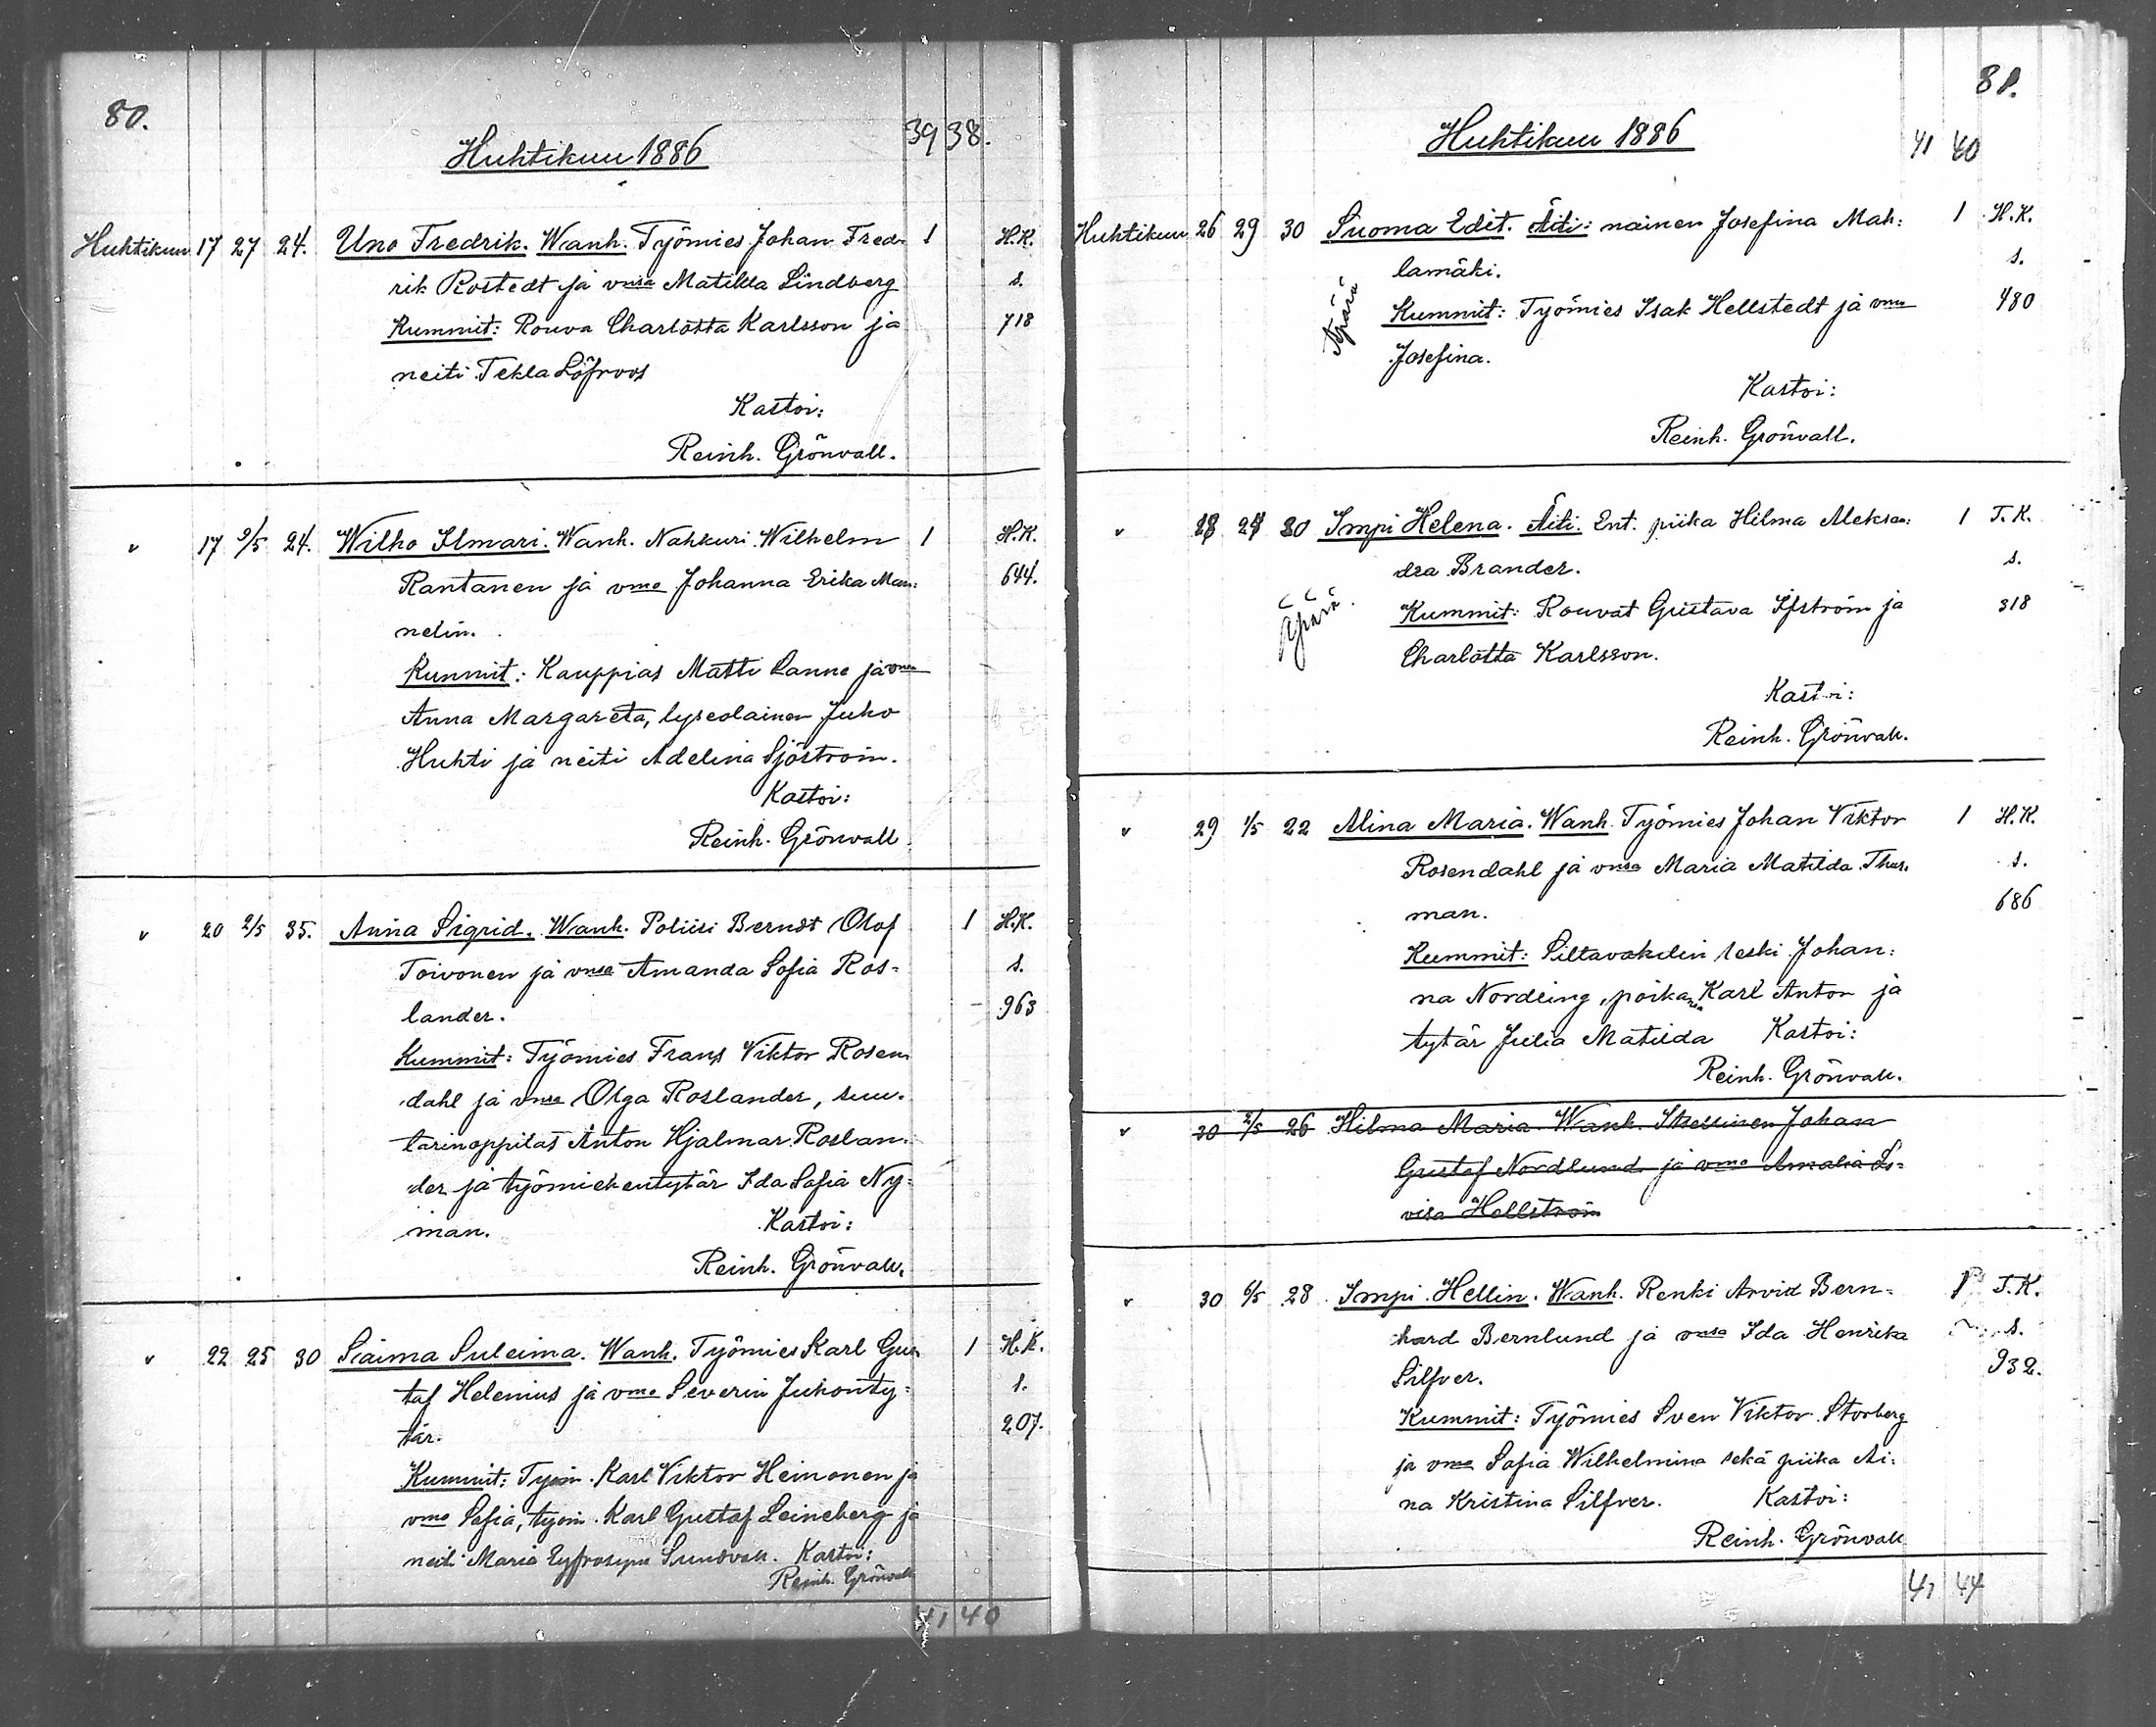 80.
Huhtikuu 1886 39 38.
Huhtikuu 17 27 24. Uno Fredrik. Wanh. Työmies Johan Fred- 1 H.K.
rik Rostedt ja vmsa Matilda Lindberg s.
Kummit: Rouva Charlotta Karlsson ja 718
neiti Tekla Löfroos
Kastoi:
Reinh. Grönvall.
" 17 9/5 24. Wilho Ilmari. Wanh. Nahkuri Wilhelm 1 H.K.
Rantanen ja vmo Johanna Erika Man= 644.
nelin.
Kummit: Kauppias Matti Lanne ja vmo
Anna Margareta, lyseolainen Juho
Huhti ja neiti Adelina Sjöström.
Kastoi:
Reinh. Grönvall
" 20 2/5 35. Anna Sigrid. Wanh. Poliisi Berndt Olof 1 H.K.
Toivonen ja vmsa Amanda Sofia Ros= s.
lander. 963
Kummit: Työmies Frans Viktor Rosen-
dahl ja vmsa Olga Roslander, suu-
tarinoppilas Anton Hjalmar Roslan-
der ja työmiehentytär Ida Sofia Ny=
man. Kastoi:
Reinh. Grönvall.
" 22 25 30 Saima Suleima. Wanh. Työmies Karl Gus- 1 H.K.
taf Helenius ja vmo Severin Juhonty= s.
tär. 207.
Kummit: Työm. Karl Viktor Heinonen ja
vmo Sofia, työm. Karl Gustaf Leineberg ja
neiti Maria Eyfrosyne Sundvall. Kastoi:
Reinh. Grönvall
41 40
81.
Huhtikuu 1886 41 40
Huhtikuu 26 29 30 Suoma Edit. Äiti: nainen Josefina Mah= 1 H.K.
lamäki. s.
Äpärä Kummit: Työmies Isak Hellstedt ja vmo 480
Josefina.
Kastoi:
Reinh. Grönvall.
" 28 29 30 Impi Helena. Äiti. Ent. piika Hilma Aleksan= 1 T.K.
dra Brander. s.
Äpärä. Kummit: Rouvat Gustava Öfström ja 318
Charlotta Karlsson.
Kastoi:
Reinh. Grönvall.
" 29 1/5 22 Alina Maria. Wanh. Työmies Johan Viktor 1 H.K.
Rosendahl ja vmsa Maria Matilda Thur- s.
man. 686
Kummit: Siltavahdin leski Johan=
na Nordling, poikansa Karl Anton ja
tytär Julia Matilda Kastoi:
Reinh. Grönvall.
" 30 2/5 26 Hilma Maria. Wanh. Itsellinen Johan
Gustaf Nordlund ja vmo Amalia Lo=
visa Hellström
" 30 6/5 28 Impi Hellin. Wanh. Renki Arvid Bern= 1 T.K.
hard Bernlund ja vmsa Ida Henrika s.
Silfver. 932.
Kummit: Työmies Sven Viktor Storberg
ja vmo Sofia Wilhelmina sekä piika Ai=
na Kristina Silfver. Kastoi:
Reinh. Grönvall
41 44